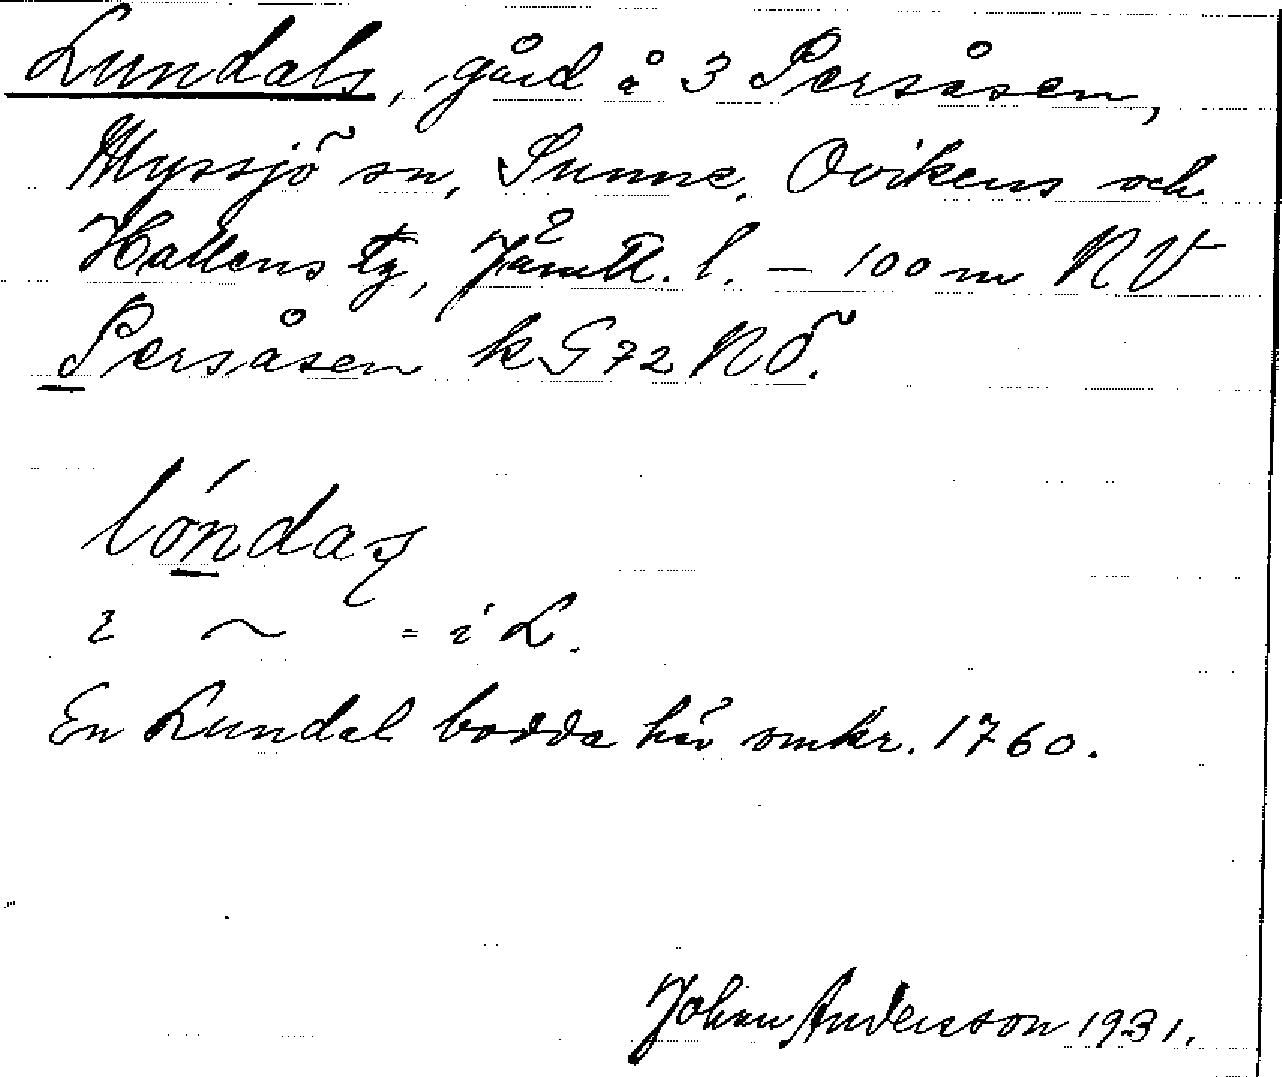 Lundals, gård å 3 Persåsen,
Myssjö sn, Sunne, Ovikens och
Hallens tg, Jämtl. l. — 100 m NV
Persåsen kG72NÖ.
lóndaʃ
i ~ = i L.
En Lundal bodda här omkr. 1760.
Johan Andersson 1931.